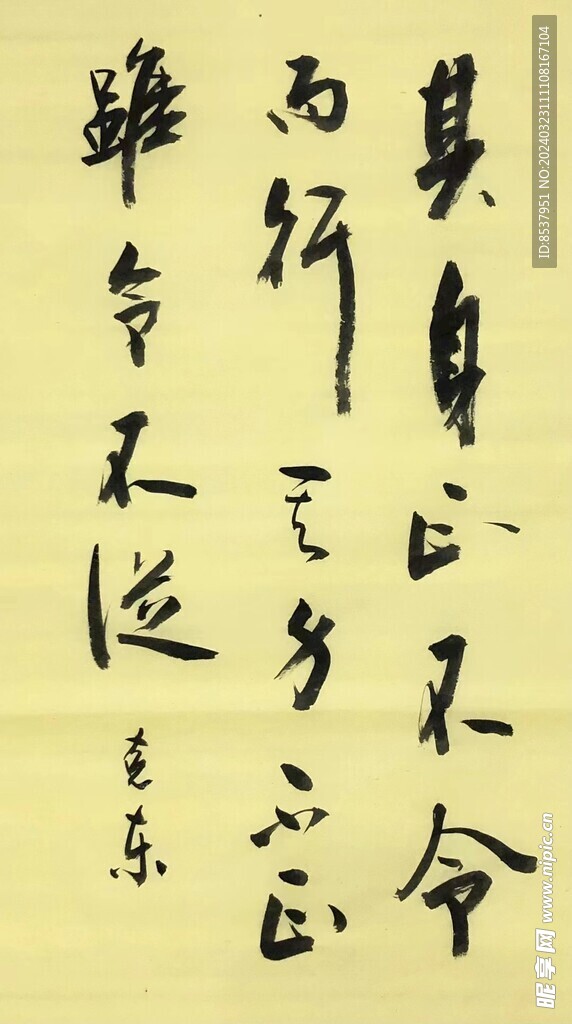 其身正不令
而行其身不正
雖令不從
克东
ID:8537951 NO:20240323111108167104
昵享网 www.nipic.cn